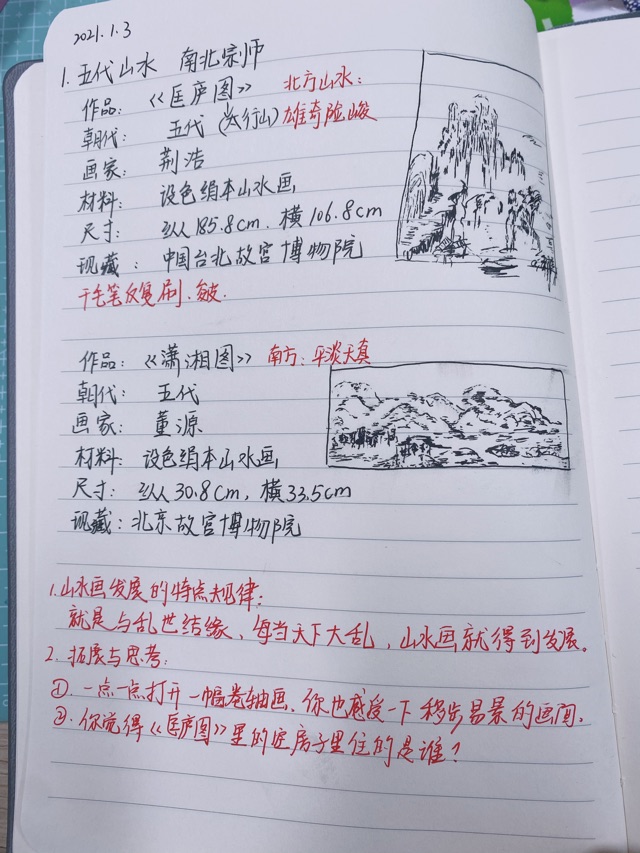 2021.1.3
1. 五代山水 南北宗师
作品：《匡庐图》 北方山水：
朝代： 五代 (太行山) 雄奇险峻
画家： 荆浩
材料： 设色绢本山水画
尺寸： 纵185.8cm，横106.8cm
现藏：中国台北故宫博物院
干毛笔反复刷，皴皮.
作品：《潇湘图》 南方：平淡天真
朝代： 五代
画家： 董源
材料：设色绢本山水画
尺寸：纵30.8cm，横33.5cm
现藏：北京故宫博物院
1.山水画发展的特点规律：
就是与乱世结缘、每当天下大乱，山水画就得到发展。
2. 拓展与思考：
①. 一点一点打开一幅卷轴画，你也感受一下移步易景的画面.
②. 你觉得《匡庐图》里的这房子里住的是谁？